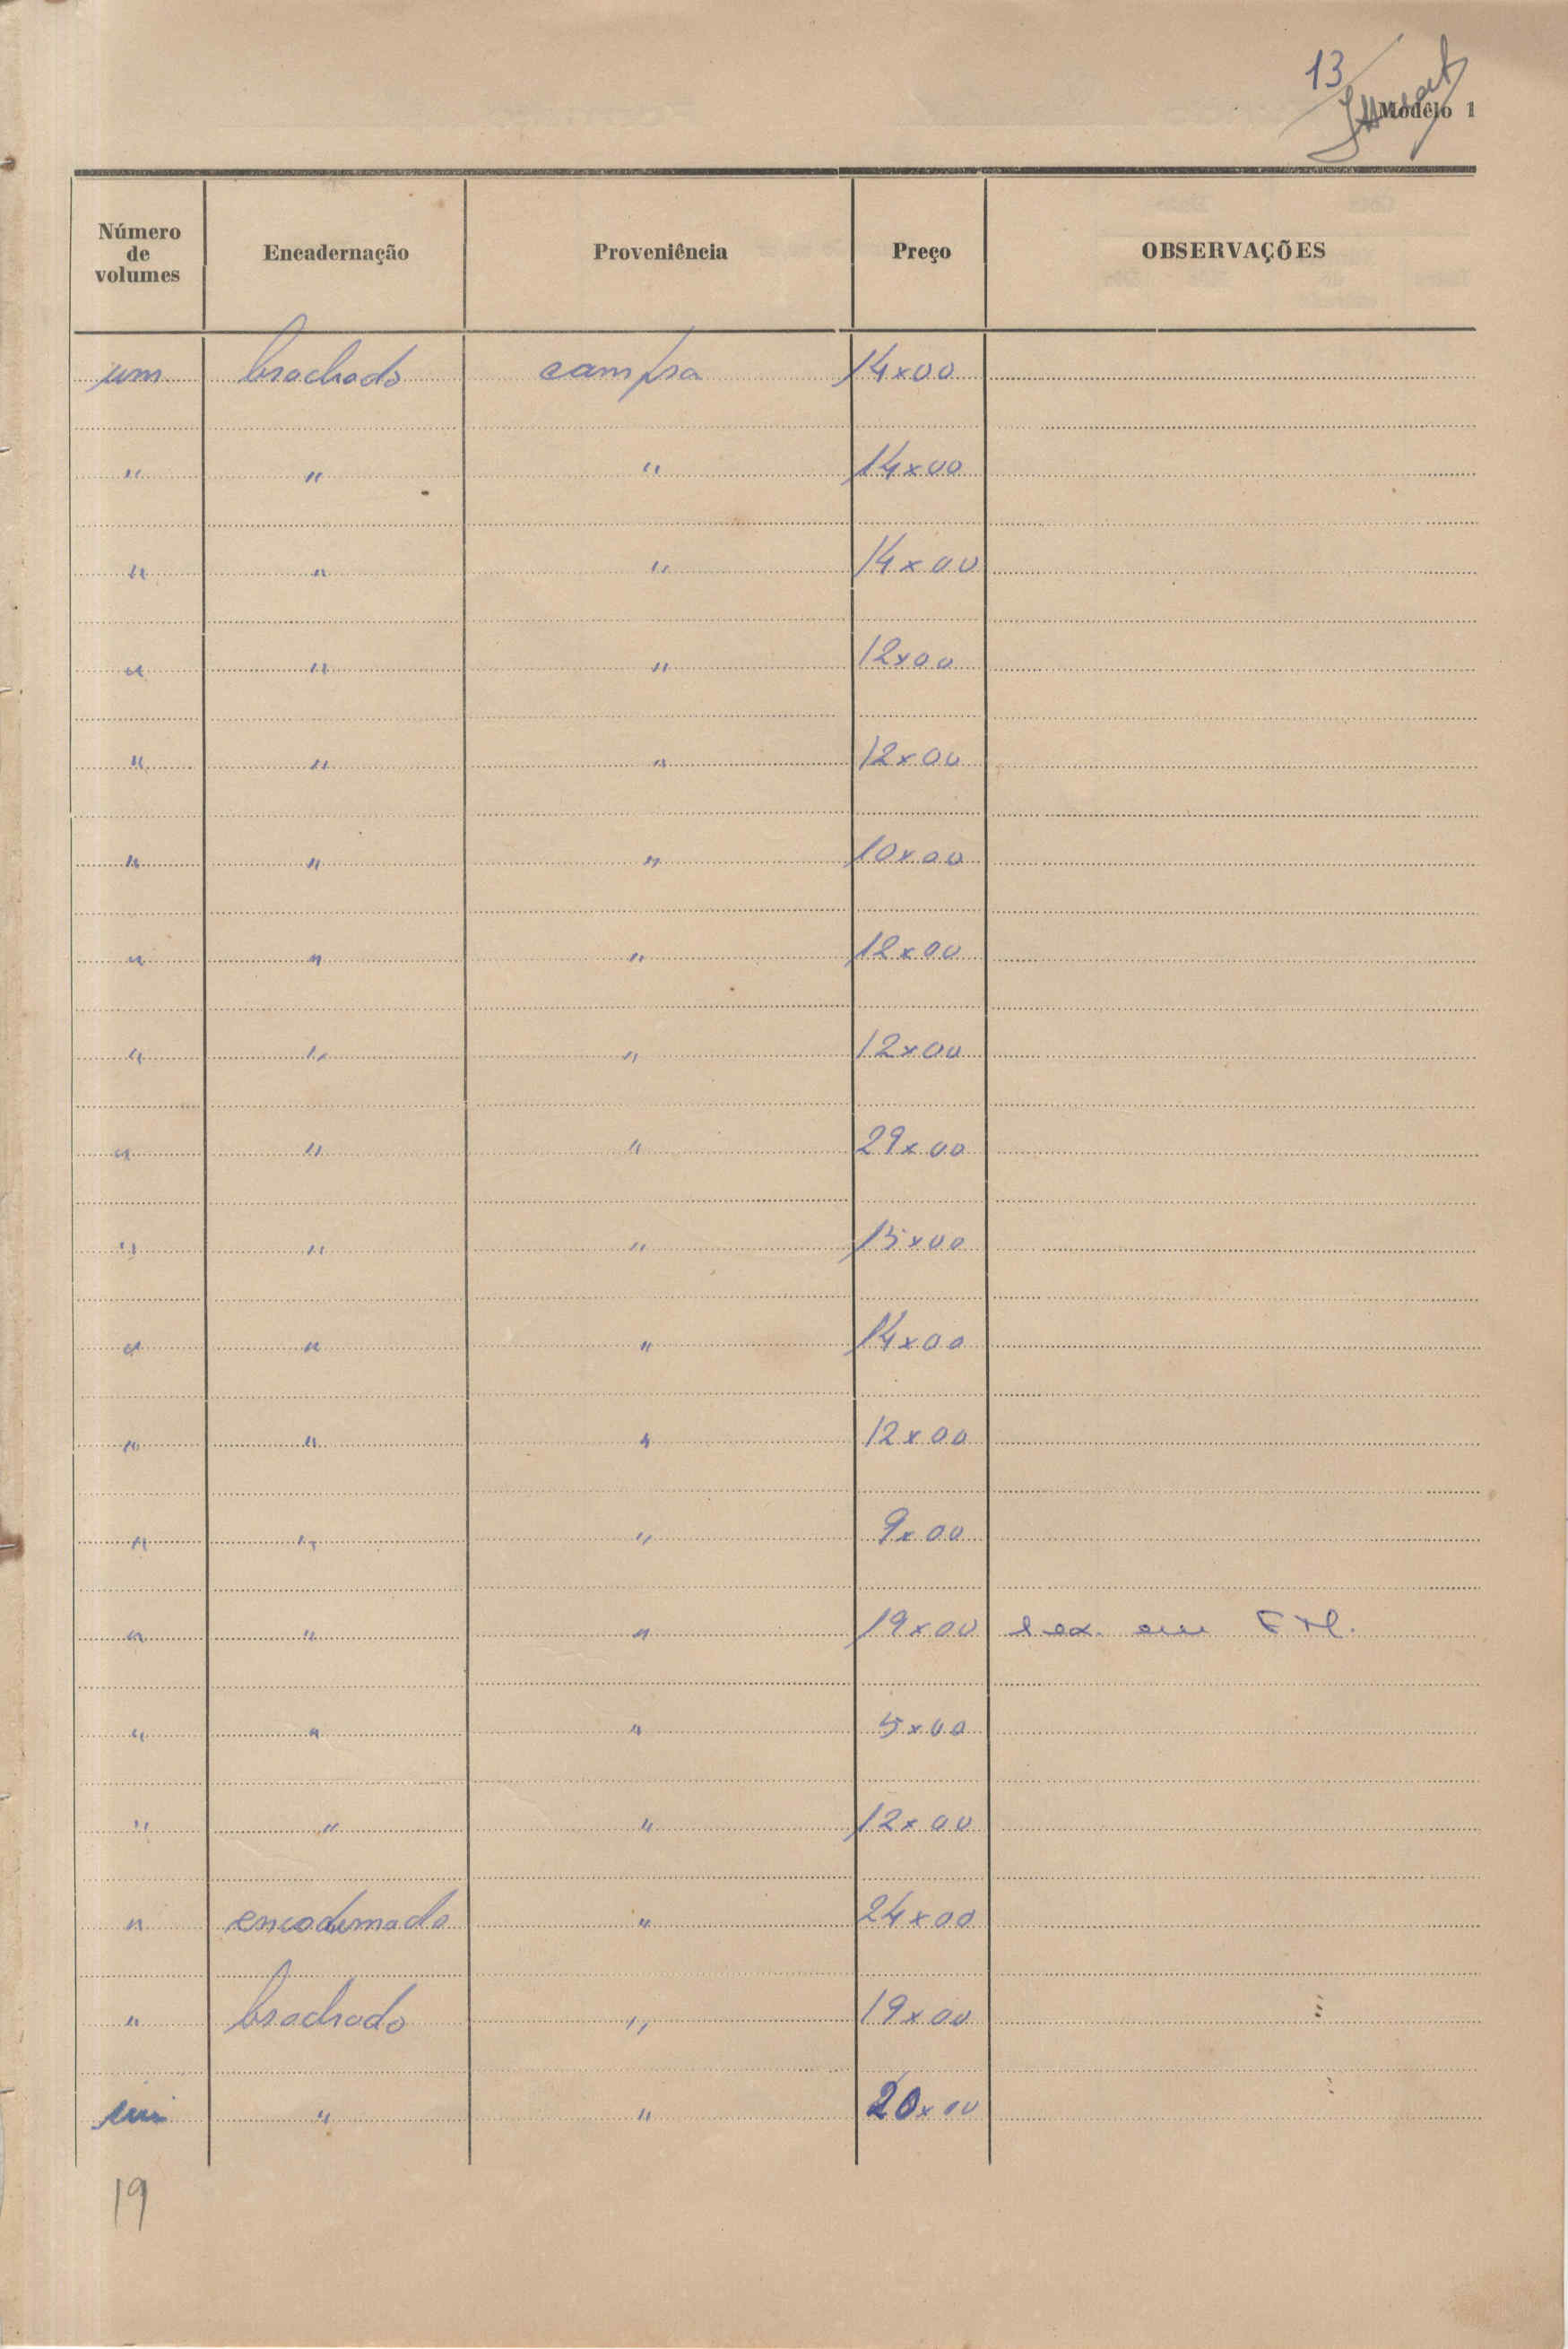 13
Modêlo 1
Número de volumes Encadernação Proveniência Preço OBSERVAÇÕES
um brochado compra 14x00
" " " 14x00
" " " 14x00
" " " 12x00
" " " 12x00
" " " 10x00
" " " 12x00
" " " 12x00
" " " 29x00
" " " 15x00
" " " 14x00
" " " 12x00
" " " 9x00
" " " 19x00 1 ex. em F M.
" " " 5x00
" " " 12x00
" encadernado " 24x00
" brochado " 19x00
um " " 20x00
19